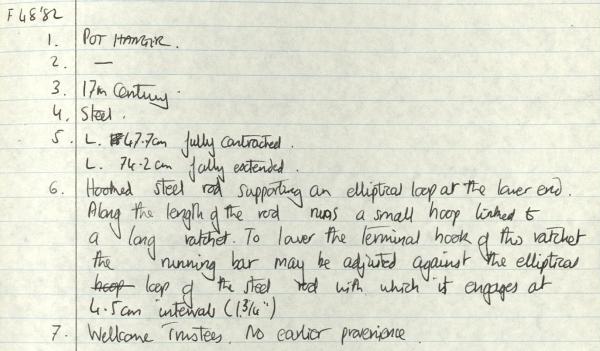 F48'82
1. POT HANGER.
2. —
3. 17th Century.
4. Steel.
5. L. 47.7cm fully contracted.
L. 74.2cm fully extended.
6. Hooked steel rod supporting an elliptical loop at the lower end.
Along the length of the rod runs a small hoop linked to
a long ratchet. To lower the terminal hook of this ratchet
the running bar may be adjusted against the elliptical
hoop loop of the steel rod with which it engages at
4.5cm intervals (1 3/4")
7. Wellcome Trustees. No earlier provenience.